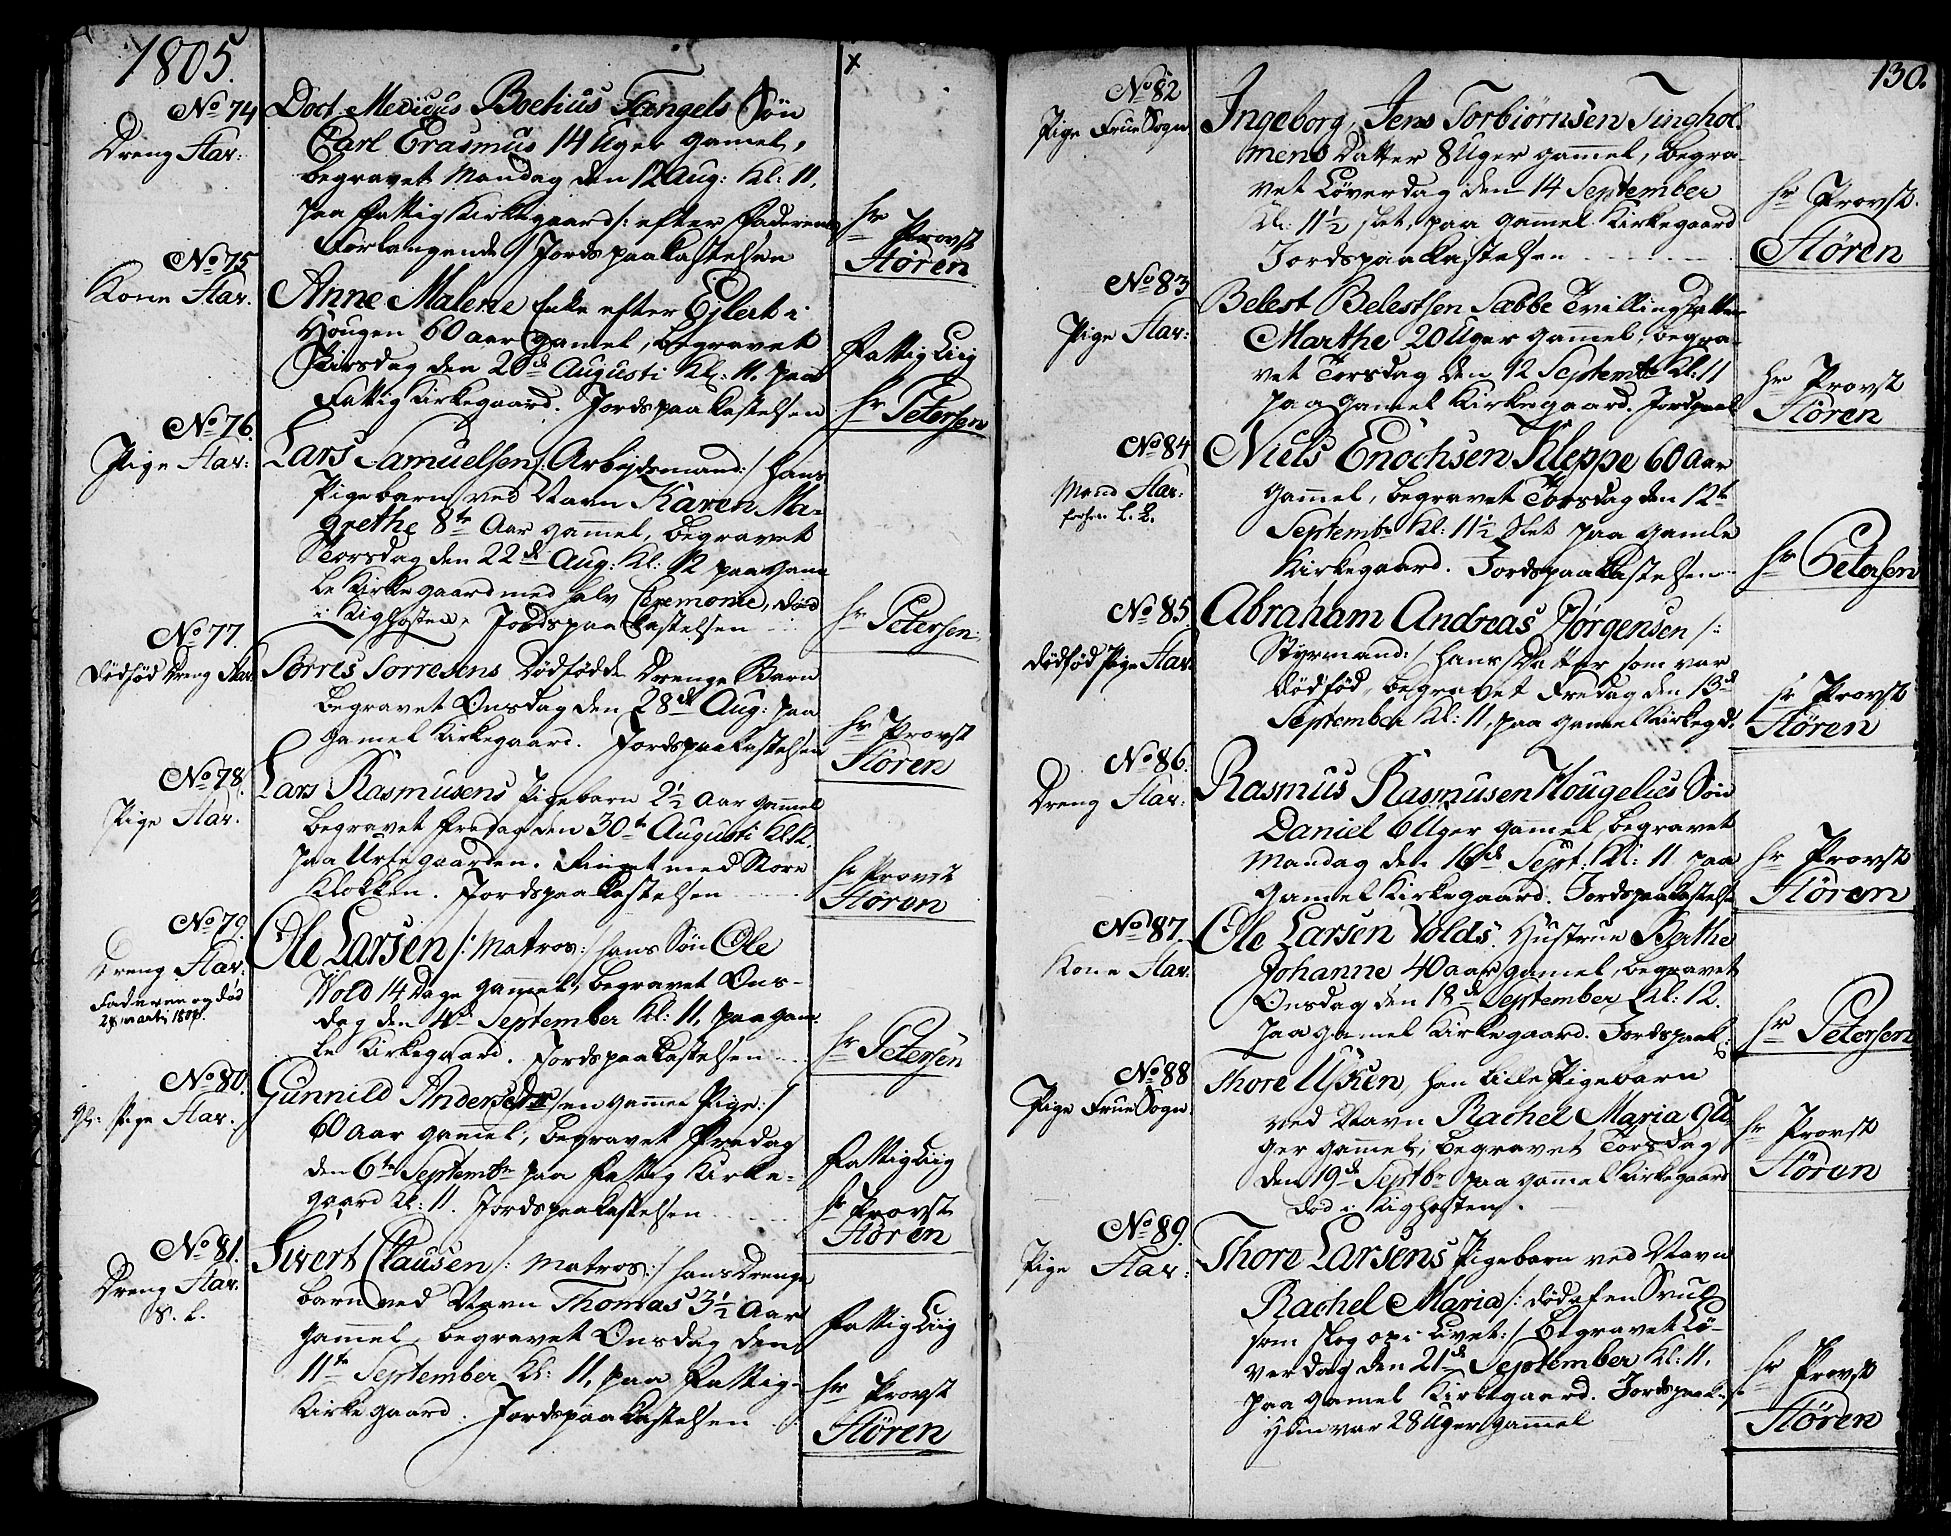 1805.
No 74
Dreng Stav:
Doct. Medicus Boetius Fangels Søn
Carl Erasmus 14 Uger gamel,
begravet Mandag den 12 Aug: Kl: 11.
paa Fattig Kirkegaard /: efter Faderens
Forlangende / Jordspaakastelsen
x
hr Provst
Støren
No 75
Kone Stav.
Anne Malene Enke efter Ejlert i
Hougen 60 aar gamel, begravet
Tirsdag den 20de Augusti Kl: 11. paa
Fattig Kirkegaard. Jordspaakastelsen
Fattig Liig
hr Petersen
No 76.
Pige Stav:
Lars Samuelsen /: Arbejdsmand: / hans
Pigebarn ved Navn Karen Ma-
grethe 8te Aar gamel, begravet
Torsdag den 22de Aug: Kl: 12 paa gam
le Kirkegaard med halv Ceremonie, død
i Kighosten, Jordspaakastelsen
hr Petersen
No 77.
Dødfød Dreng Stav.
Sørres Sørresens Dødfødde Drenge Barn
begravet Onsdag den 28de Aug: paa
gamel Kirkegaard. Jordspaakastelsen
hr Provst
Støren
No 78.
Pige Stav.
Lars Rasmusens Pigebarn 2 1/2 Aar gammel
begravet Fredag den 30te Augusti Kl 12.
paa Urtegaarden. Ringet med Store
Klokken. Jordspaakastelsen
hr Provst
Støren
No 79.
Dreng Stav:
Faderen og død
Ole Larsen /: Matros: / hans Søn Ole
Wold 14 Dage gammel, begravet Ons-
dag den 4de September Kl: 11, paa gam
le Kirkegaard. Jordspaakastelsen
hr Petersen
No 80.
gl: Pige Stav.
Gunnild Andersedr /en gammel Pige: /
60 Aar gammel, begravet Fredag
den 6te Septembr paa Fattig Kirke-
gaard Kl: 11. Jordspaakastelsen
Fattig Liig
hr Provst
Støren
No 81.
Dreng Stav.
S. L.
Sivert Clausen /: Matros: / hans Drenge
barn ved Navn Thomas 3 1/2 Aar
gammel, begravet Onsdag den
11te September Kl: 11, paa Fattig-
Kirkegaard. Jordspaakastelsen
Fattig Liig
hr Provst
Støren
130.
No 82
Pige Frue Sogn
Ingeborg, Jens Torbiørnsen Tinghol-
mens Datter 8 Uger gammel, begra-
vet Løverdag den 14 September
Kl: 11 1/2 slet, paa gamel Kirkegaard
Jordspaakastelsen
hr Provst
Støren
No 83
Pige Stav:
Belest Belestsen Sæbbe Tvilling Datter
Marthe 20 Uger gammel, begra-
vet Torsdag den 12 Septembr Kl: 11
paa gamel Kirkegaard. Jordspaak
hr Provst
Støren
No 84
Mand Stav:
Niels Enochsen Kleppe 60 Aar
gammel, begravet Torsdag den 12te
Septembr Kl: 11 1/2 Slet paa gamle
Kirkegaard. Jordspaakastelsen
hr Petersen
No 85.
Dødfød Pige Stav.
Abraham Andreas Jørgensen /:
Styrmand: / hans Datter som var
dødfød, begravet Fredag den 13de
September Kl: 11, paa gamel Kirkegd.
hr Provst
Støren
No 86.
Dreng Stav:
Rasmus Rasmusen Hougelies Søn
Daniel 6 Uger gamel, begravet
Mandag den 16de Sept. Kl: 11 paa
gammel Kirkegaard. Jordspaakastelse
hr Provst
Støren
No 87.
Kone Stav.
Ole Larsen Volds Hustrue Berthe
Johanne 40 aar gamel, begravet
Onsdag den 18de September Kl: 12.
paa gamel Kirkegaard. Jordspaak:
hr Petersen
No 88
Pige Frue Sogn
Thore Usken, hen Lille Pigebarn
ved Navn Rachel Maria 9 U-
ger gammel, begravet Torsdag
den 19de Septbr paa gammel Kirkegaard
død i Kighosten.
hr Provst
Støren
No 89.
Pige Stav:
Thore Larsens Pigebarn ved Navn
Rachel Maria /: død af en Svulst
som slog op i Livet: / begravet Lø-
verdag den 21de September Kl: 11.
paa gamel Kirkegaard. Jordspaak:
Hun var 28 Uger gammel
hr Provst
Støren